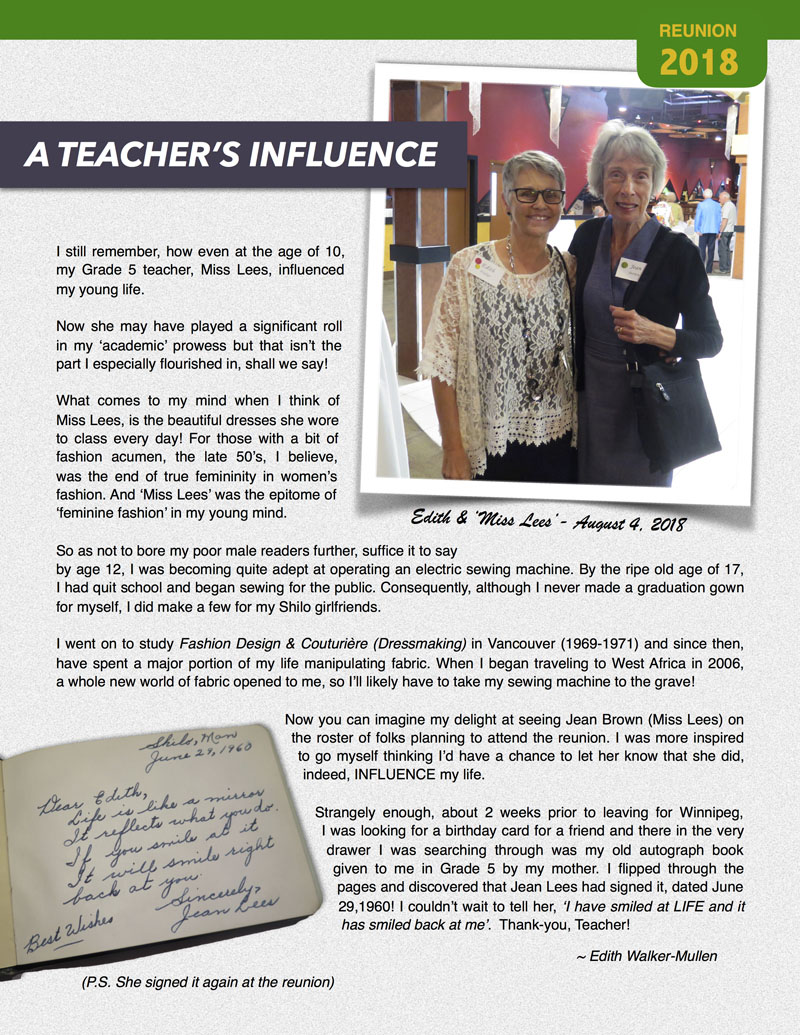 REUNION
2018
A TEACHER'S INFLUENCE
I still remember, how even at the age of 10,
my Grade 5 teacher, Miss Lees, influenced
my young life.
Now she may have played a significant roll
in my 'academic' prowess but that isn't the
part I especially flourished in, shall we say!
What comes to my mind when I think of
Miss Lees, is the beautiful dresses she wore
to class every day! For those with a bit of
fashion acumen, the late 50's, I believe,
was the end of true femininity in women's
fashion. And 'Miss Lees' was the epitome of
'feminine fashion' in my young mind.
Edith & 'Miss Lees' - August 4, 2018
So as not to bore my poor male readers further, suffice it to say
by age 12, I was becoming quite adept at operating an electric sewing machine. By the ripe old age of 17,
I had quit school and began sewing for the public. Consequently, although I never made a graduation gown
for myself, I did make a few for my Shilo girlfriends.
I went on to study Fashion Design & Couturière (Dressmaking) in Vancouver (1969-1971) and since then,
have spent a major portion of my life manipulating fabric. When I began traveling to West Africa in 2006,
a whole new world of fabric opened to me, so I'll likely have to take my sewing machine to the grave!
Now you can imagine my delight at seeing Jean Brown (Miss Lees) on
the roster of folks planning to attend the reunion. I was more inspired
to go myself thinking I'd have a chance to let her know that she did,
indeed, INFLUENCE my life.
Strangely enough, about 2 weeks prior to leaving for Winnipeg,
I was looking for a birthday card for a friend and there in the very
drawer I was searching through was my old autograph book
given to me in Grade 5 by my mother. I flipped through the
pages and discovered that Jean Lees had signed it, dated June
29,1960! I couldn't wait to tell her, 'I have smiled at LIFE and it
has smiled back at me'. Thank-you, Teacher!
~ Edith Walker-Mullen
Shilo, Man
June 29, 1960
Dear Edith,
Life is like a mirror
It reflects what you do.
If you smile at it
It will smile right
back at you.
Sincerely,
Jean Lees
Best Wishes
(P.S. She signed it again at the reunion)